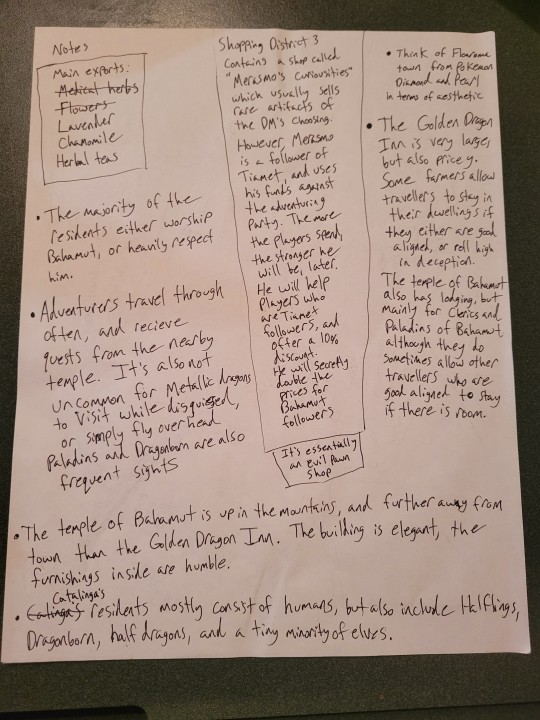 Notes
Main exports:
Medical herbs
Flowers
Lavender
Chamomile
Herbal teas
• The majority of the
residents either worship
Bahamut, or heavily respect
him.
• Adventurers travel through
often, and recieve
quests from the nearby
temple. It's also not
uncommon for Metallic dragons
to visit while disguised,
or simply fly overhead
Paladins and Dragonborn are also
frequent sights
Shopping District 3
Contains a shop called
"Merasmo's Curiousities"
which usually sells
rare artifacts of
the DM's choosing.
However, Merasmo
is a follower of
Tiamet, and uses
his funds against
the adventuring
Party. The more
the players spend,
the stronger he
will be, later.
He will help
Players who
are Tiamet
followers, and
offer a 10%
discount.
He will secretly
double the
prices for
Bahamut
followers
It's essentially
an evil Pawn
shop
• Think of Floaroma
town from Pokemon
Diamond and Pearl
in terms of aesthetic
• The Golden Dragon
Inn is very large,
but also pricey.
Some farmers allow
travellers to stay in
their dwellings if
they either are good
aligned, or roll high
in deception.
The temple of Bahamut
also has lodging, but
mainly for Clerics and
Paladins of Bahamut
although they do
sometimes allow other
travellers who are
good aligned to stay
if there is room.
• The temple of Bahamut is up in the mountains, and further away from
town than the Golden Dragon Inn. The building is elegant, the
furnishings inside are humble.
Catalinga's
• Calinga's residents mostly consist of humans, but also include Halflings,
Dragonborn, half dragons, and a tiny minority of elves.